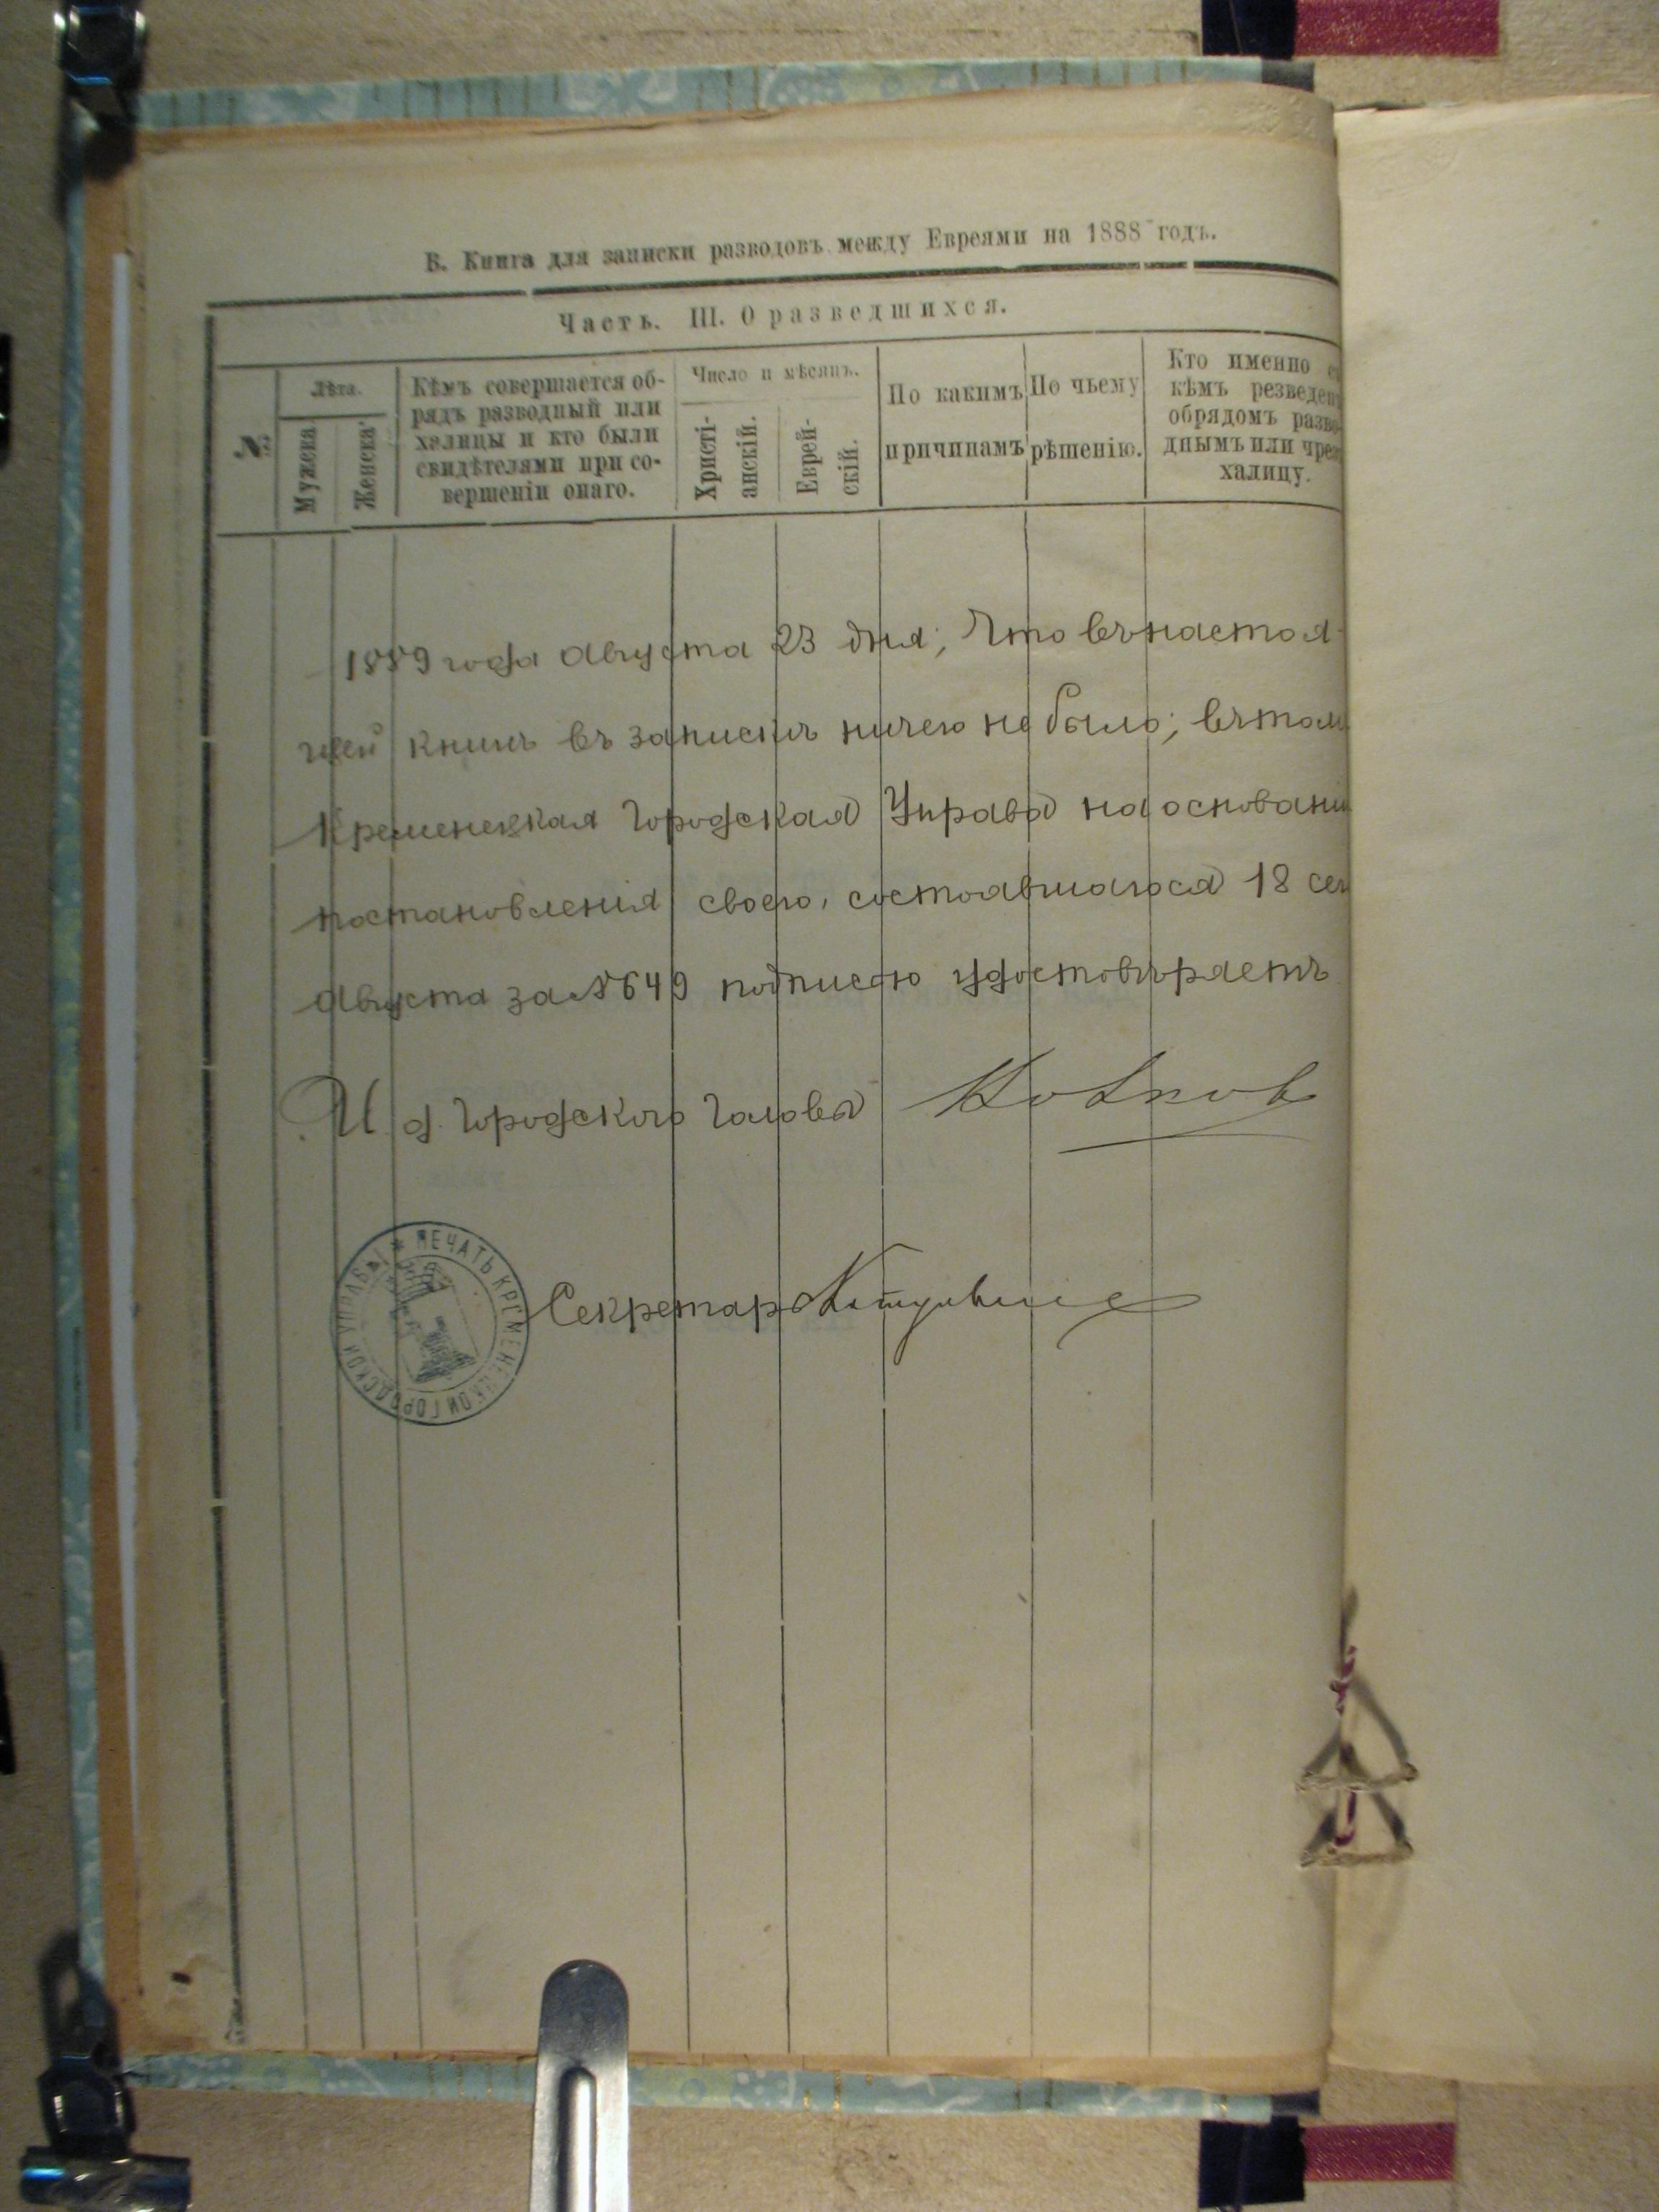 В. Книга для записки разводовъ между Евреями на 1888 годъ.
Часть. III. О разведшихся.
№
Лѣта.
Мужеска
Женска
Кѣмъ совершается об-
рядъ разводный или
халицы и кто были
свидѣтелями при со-
вершеніи онаго.
Число и мѣсяцъ.
Христі-
анскій.
Еврей-
скій.
По какимъ
причинамъ
По чьему
рѣшенію.
Кто именно съ
кѣмъ резведен
обрядомъ разво
днымъ или чрез
халицу.
1889 года Августа 23 дня; Что въ настоя-
щей книгѣ въ запискѣ ничего не было; въ том
Кременецкая Городская Управа на основани
постановления своего, состоявшагося 18 сег
Августа за № 649 подписью удостовѣряетъ
И. д. Городского Головы
Секретарь
* ПЕЧАТЬ КРЕМЕНЕЦКОЙ ГОРОДСКОЙ УПРАВЫ